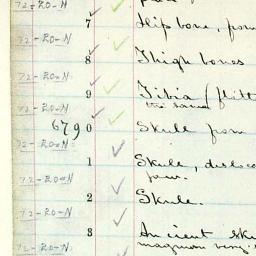 72-RO-N
7 Hip bone, from
72-RO-N
8 Thigh bones
72-RO-N
9 Tibia (flitt
the same
72-RO-N
6790 Skull from
72-RO-N
1 Skull, disloc
jaw.
72-RO-N
2 Skull.
72-RO-N
3 Ancient ske
magnum very
72-RO-N